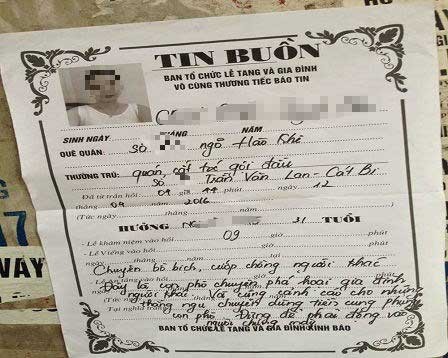 TIN BUỒN
BAN TỔ CHỨC LỄ TANG VÀ GIA ĐÌNH
VÔ CÙNG THƯƠNG TIẾC BÁO TIN
SINH NGÀY THÁNG NĂM
QUÊ QUÁN: Số ngõ Hào Khê
THƯỜNG TRÚ: quán cắt tóc gội đầu
Số Trần Văn Lan - Cát Bi
Đã từ trần hồi 09 giờ 44 phút, ngày 12
tháng 04 năm 2016
(Tức ngày tháng năm
HƯỞNG 31 TUỔI
- Lễ khâm niệm vào hồi 09 giờ
- Lễ Viếng vào hồi
Chuyên bồ bịch, cướp chồng người khác
Đây là con phò chuyên phá hoại gia đình
người khác, là cũng cảnh cáo cho những
thằng ngu chuyên dùng tiền cung phụng
con phò. Đừng để phải động vào
người chúng mày
BAN TỔ CHỨC LỄ TANG VÀ GIA ĐÌNH KÍNH BÁO
WAY